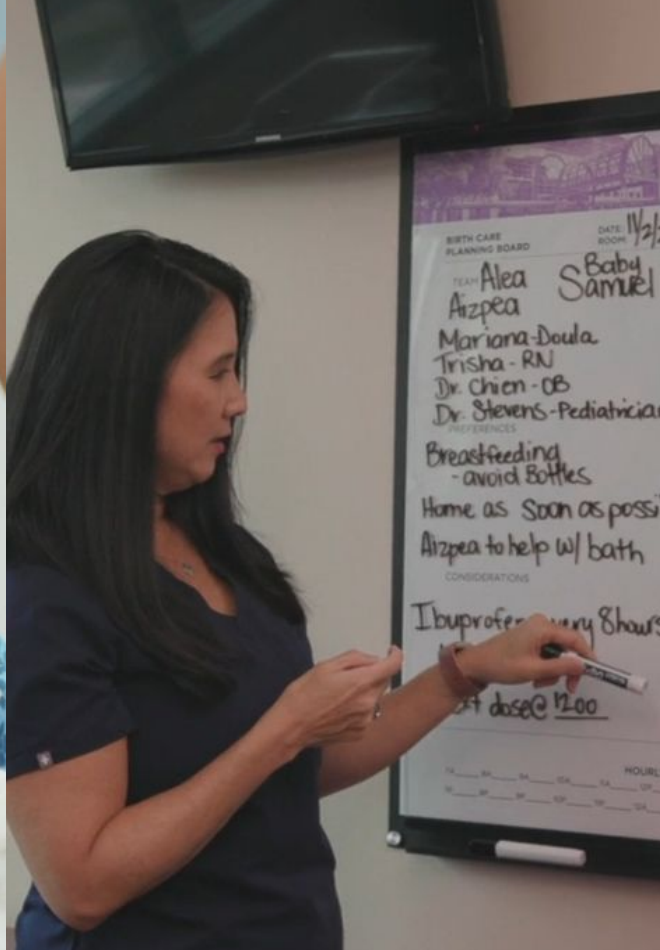 BIRTH CARE
PLANNING BOARD
DATE: 11/2/
ROOM:
TEAM Alea
Aizpea
Baby
Samuel
Mariana-Doula
Trisha - RN
Dr. Chien - OB
Dr. Stevens - Pediatrician
PREFERENCES
Breastfeeding
- avoid Bottles
Home as Soon as possi
Aizpea to help w/ bath
CONSIDERATIONS
Ibuprofe very 8hours
dose@ 1200
HOURL